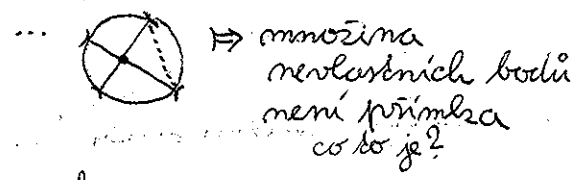 ... ⇒ množina
nevlastních bodů
není přímka
co to je?